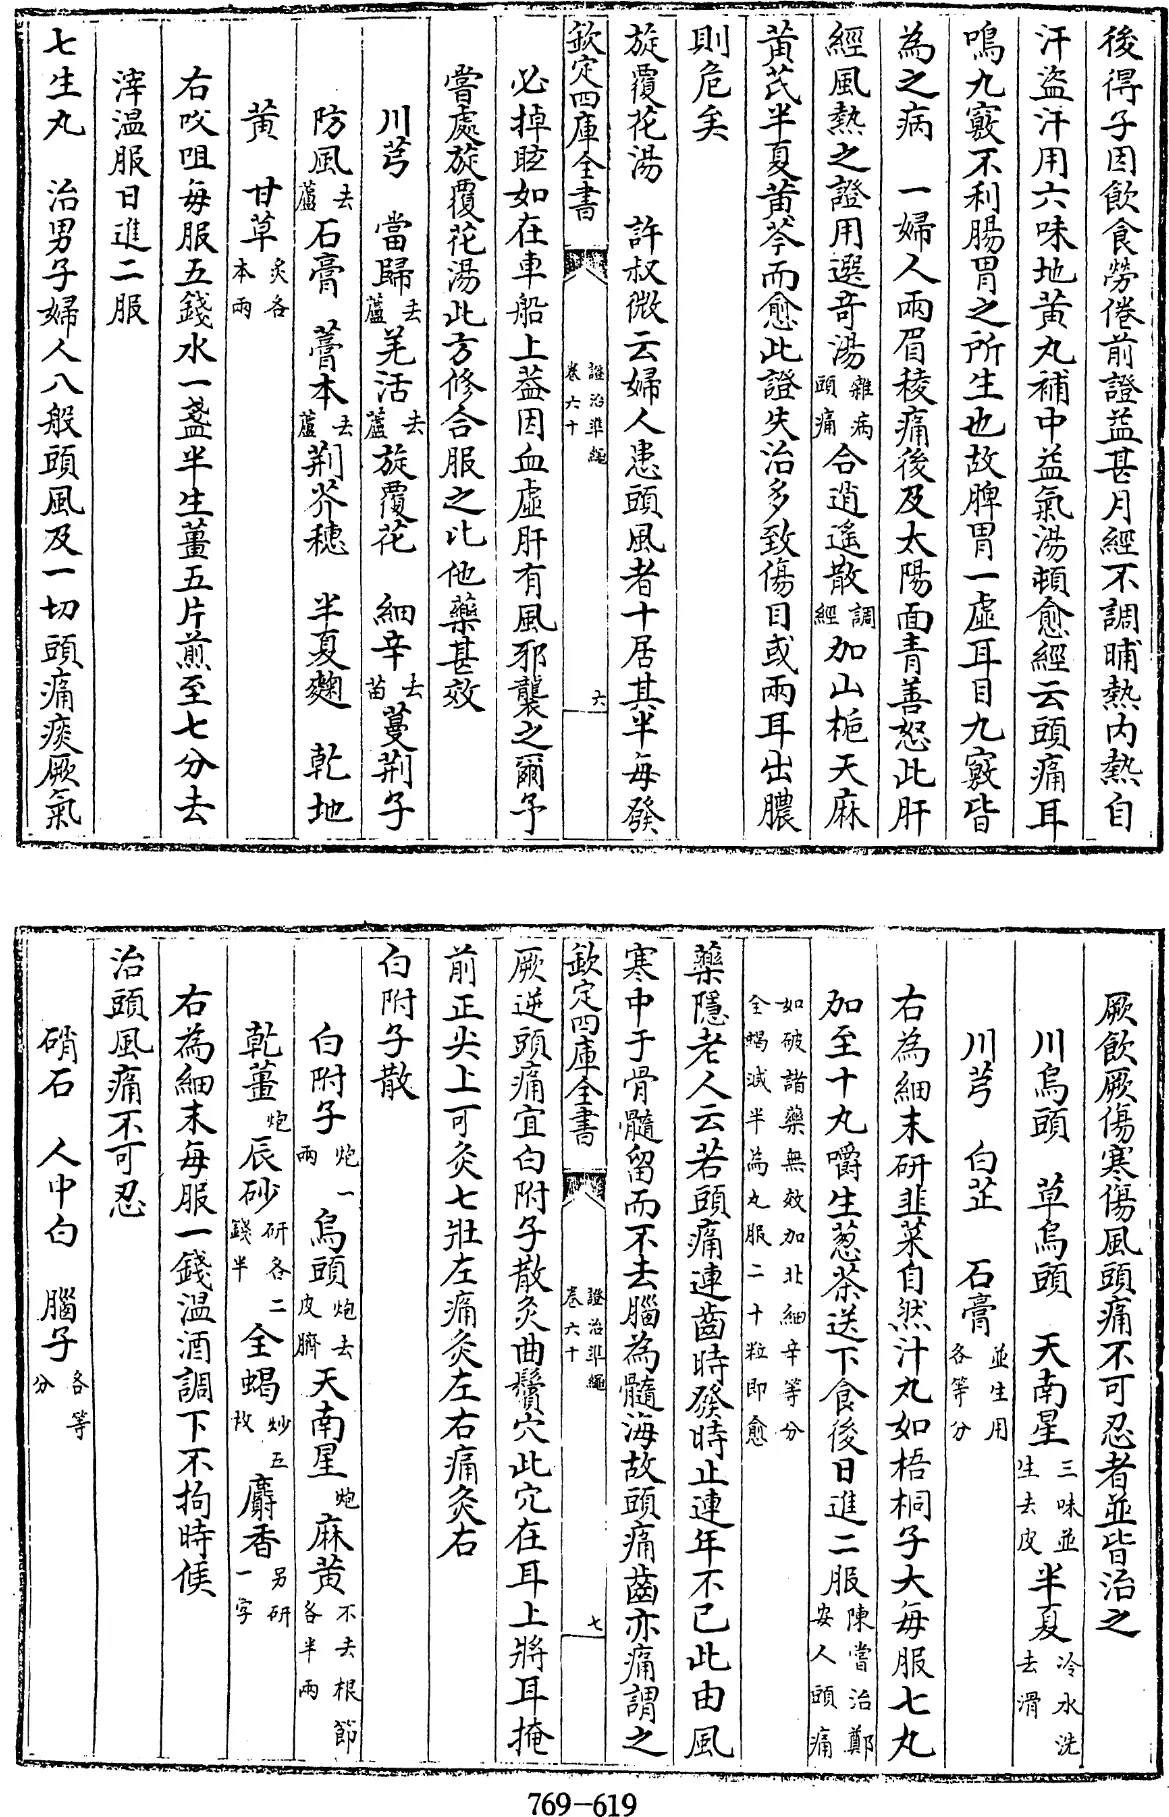 後得子因飲食勞倦前證益甚月經不調晡熱内熱自
汗盜汗用六味地黄丸補中益氣湯頓愈經云頭痛耳
鳴九竅不利腸胃之所生也故脾胃一虛耳目九竅皆
為之病　一婦人兩眉稜痛後及太陽面青善怒此肝
經風熱之證用選竒湯雜病頭痛合逍遙散調經加山梔天麻
黄芪半夏黄芩而愈此證失治多致傷目或兩耳出膿
則危矣
旋覆花湯　許叔微云婦人患頭風者十居其半每發
欽定四庫全書　證治準繩卷六十　六
必掉眩如在車船上葢因血虛肝有風邪襲之爾予
嘗處旋覆花湯此方修合服之比他藥甚效
川芎　當歸去蘆羌活去蘆旋覆花　細辛去苗蔓荆子
防風去蘆石膏　藁本去蘆荆芥穗　半夏麴　乾地
黄　甘草炙各本兩
右㕮咀每服五錢水一盞半生薑五片煎至七分去
滓温服日進二服
七生丸　治男子婦人八般頭風及一切頭痛痰厥氣
厥飲厥傷寒傷風頭痛不可忍者並皆治之
川烏頭　草烏頭　天南星三味並生去皮半夏冷水洗去滑
川芎　白芷　石膏並生用各等分
右為細末研韭菜自然汁丸如梧桐子大每服七丸
加至十丸嚼生葱茶送下食後日進二服陳嘗治鄭安人頭痛
如破諸藥無效加北細辛等分全蝎減半為丸服二十粒即愈
藥隱老人云若頭痛連齒時發時止連年不已此由風
寒中于骨髓留而不去腦為髓海故頭痛齒亦痛謂之
欽定四庫全書　證治準繩卷六十　七
厥逆頭痛宜白附子散灸曲鬢穴此穴在耳上將耳掩
前正尖上可灸七壯左痛灸左右痛灸右
白附子散
白附子炮一兩烏頭炮去皮臍天南星炮麻黄不去根節各半兩
乾薑炮辰砂研各二錢半全蝎炒五枚麝香另研一字
右為細末每服一錢温酒調下不拘時候
治頭風痛不可忍
硝石　人中白　腦子各等分
769-619